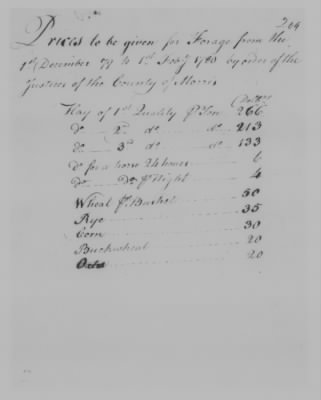 204
Prices to be given for Forage from the
1st December 79 to 1st Feby 1780 by order of the
Justices of the County of Morris
Dollrs
Hay of 1st Quality pr Ton 266
do 2d do do 213
do 3d do do 133
do for a horse 24 hours 6
do do pr Night 4
Wheat pr Bushel 50
Rye 35
Corn 30
Buckwheat 20
Oats 20